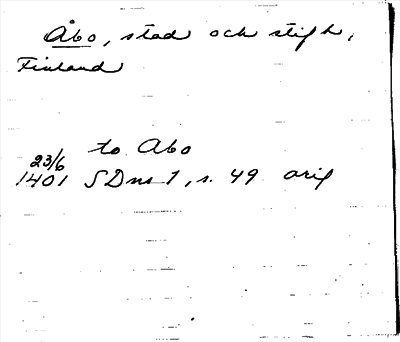 Åbo, stad och stift,
Finland
to Abo
23/6
1401 SD ns 1, s. 49 orig